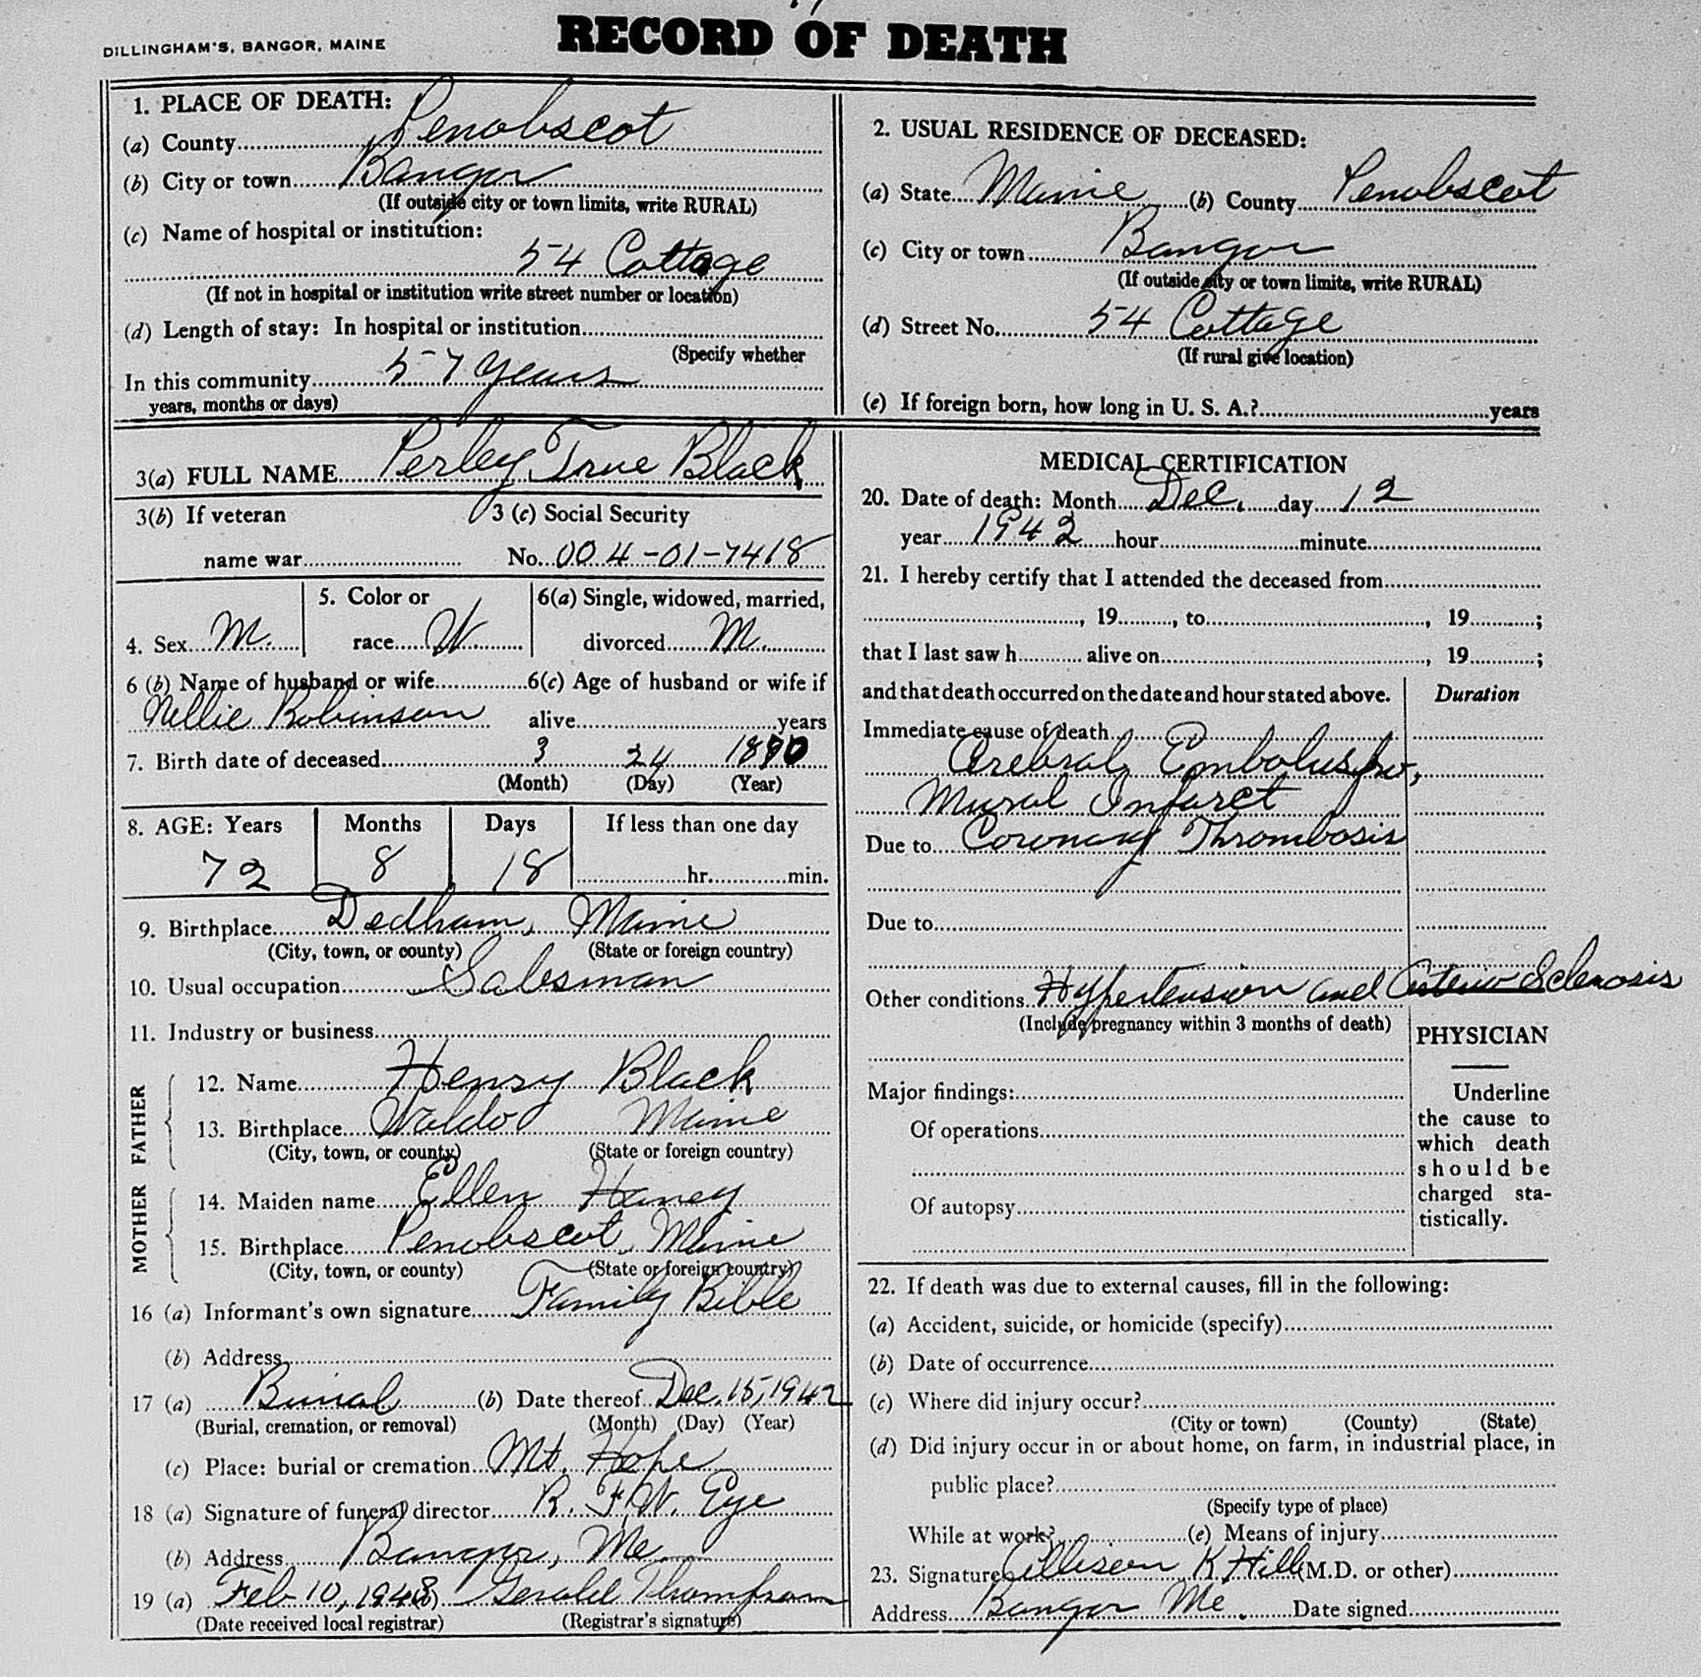 DILLINGHAM'S, BANGOR, MAINE
RECORD OF DEATH
1. PLACE OF DEATH:
(a) County Penobscot
(b) City or town Bangor
(If outside city or town limits, write RURAL)
(c) Name of hospital or institution:
54 Cottage
(If not in hospital or institution write street number or location)
(d) Length of stay: In hospital or institution
(Specify whether
In this community 57 years
years, months or days)
2. USUAL RESIDENCE OF DECEASED:
(a) State Maine (b) County Penobscot
(c) City or town Bangor
(If outside city or town limits, write RURAL)
(d) Street No. 54 Cottage
(If rural give location)
(e) If foreign born, how long in U. S. A.? years
3(a) FULL NAME Perley True Black
3(b) If veteran 3 (c) Social Security
name war No. 004-01-7418
5. Color or 6(a) Single, widowed, married,
4. Sex M. race W divorced M.
6 (b) Name of husband or wife 6(c) Age of husband or wife if
Nellie Robinson alive years
7. Birth date of deceased 3 24 1870
(Month) (Day) (Year)
8. AGE: Years Months Days If less than one day
72 8 18 hr. min.
9. Birthplace Dedham, Maine
(City, town, or county) (State or foreign country)
10. Usual occupation Salesman
11. Industry or business
FATHER
12. Name Henry Black
13. Birthplace Waldo Maine
(City, town, or county) (State or foreign country)
MOTHER
14. Maiden name Ellen Haney
15. Birthplace Penobscot, Maine
(City, town, or county) (State or foreign country)
16 (a) Informant's own signature Family Bible
(b) Address
17 (a) Burial (b) Date thereof Dec. 15, 1942
(Burial, cremation, or removal) (Month) (Day) (Year)
(c) Place: burial or cremation Mt. Hope
18 (a) Signature of funeral director R. F. W. Eye
(b) Address Bangor, Me.
19 (a) Feb 10, 1943 Gerald Thompson
(Date received local registrar) (Registrar's signature)
MEDICAL CERTIFICATION
20. Date of death: Month Dec. day 12
year 1942 hour minute
21. I hereby certify that I attended the deceased from
, 19 , to , 19 ;
that I last saw h alive on , 19 ;
and that death occurred on the date and hour stated above. Duration
Immediate cause of death
Cerebral Embolus
Mural Infarct
Due to Coronary Thrombosis
Due to
Other conditions Hypertension and Arterio Sclerosis
(Include pregnancy within 3 months of death)
PHYSICIAN
Underline
the cause to
which death
should be
charged sta-
tistically.
Major findings:
Of operations
Of autopsy
22. If death was due to external causes, fill in the following:
(a) Accident, suicide, or homicide (specify)
(b) Date of occurrence
(c) Where did injury occur?
(City or town) (County) (State)
(d) Did injury occur in or about home, on farm, in industrial place, in
public place?
(Specify type of place)
While at work? (e) Means of injury
23. Signature Allison K Hill (M.D. or other)
Address Bangor Me. Date signed